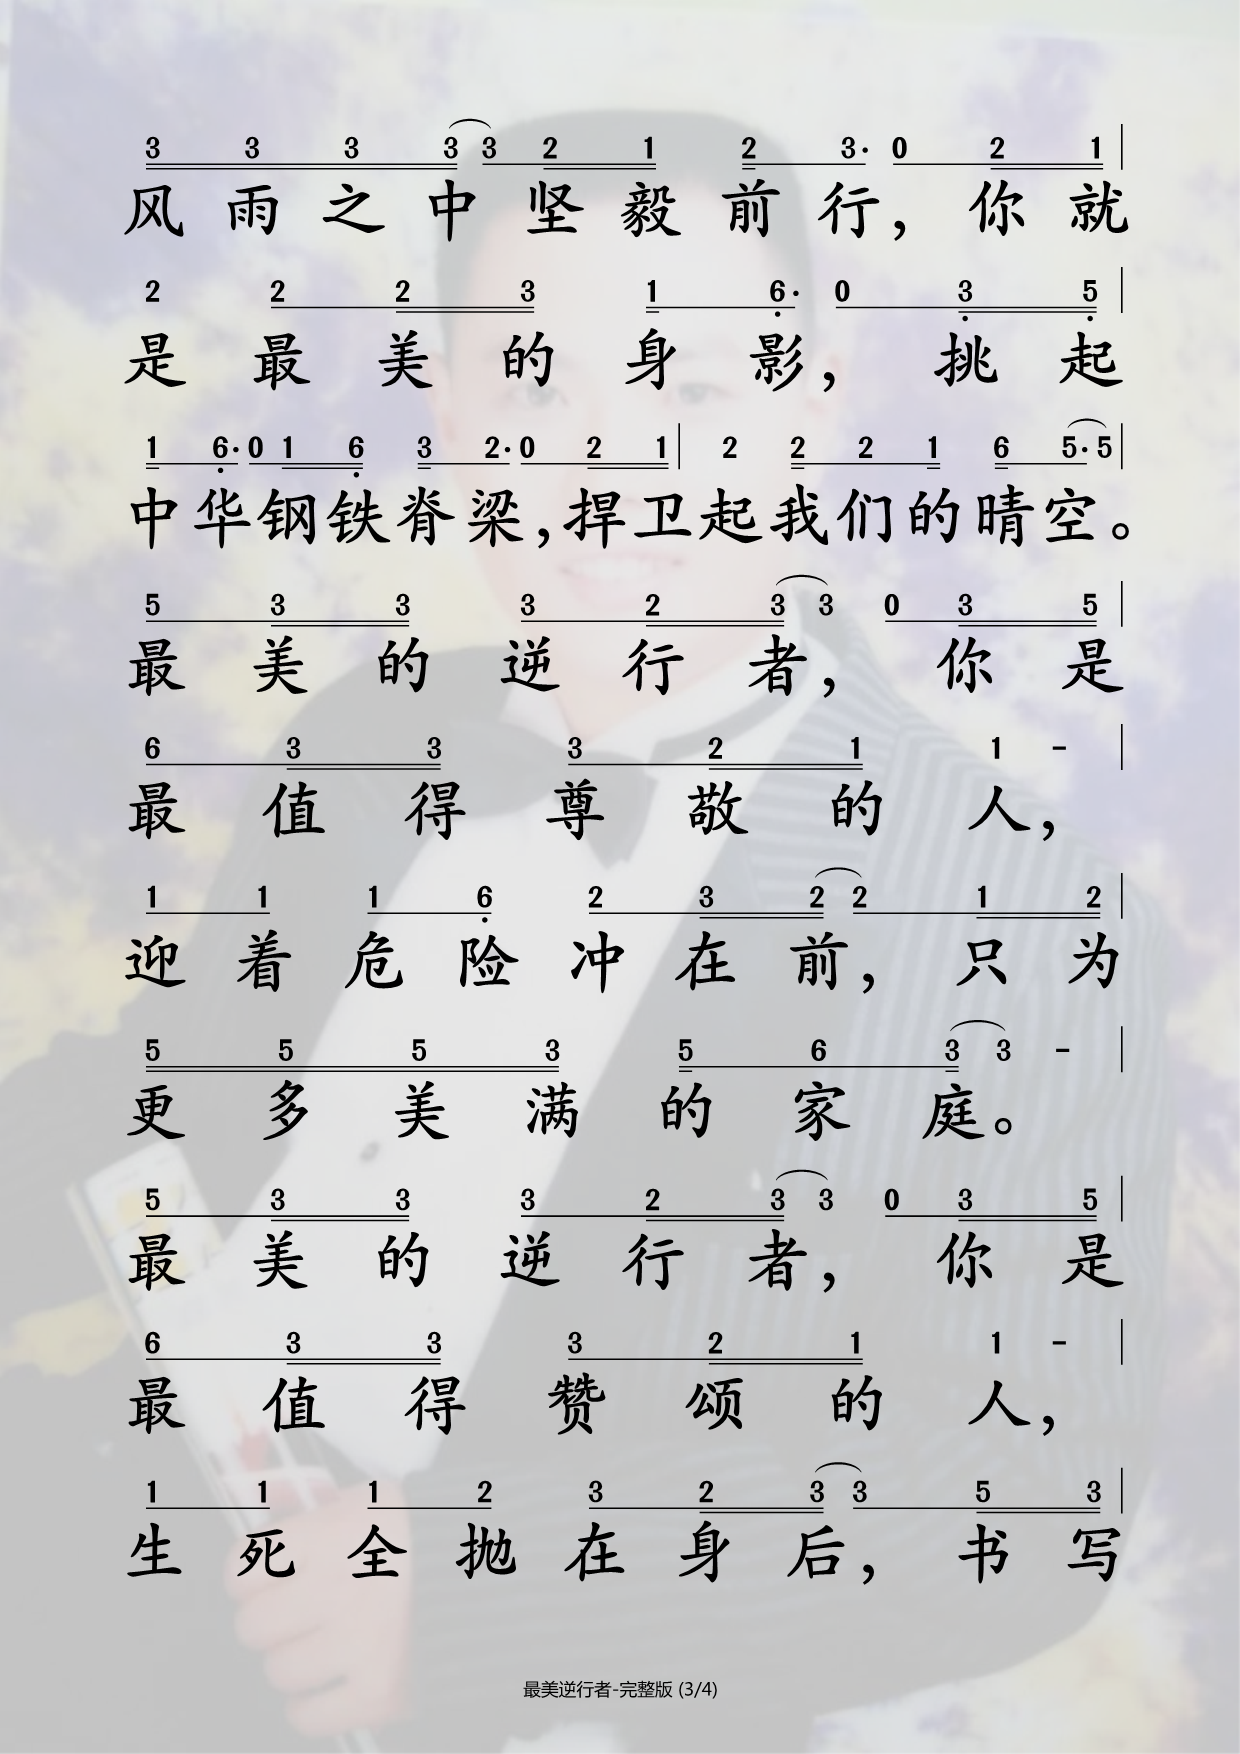 3 3 3 3 3 2 1 2 3· 0 2 1
风雨之中坚毅前行，你就
2 2 2 3 1 6· 0 3 5
是最美的身影，挑起
1 6· 0 1 6 3 2· 0 2 1 2 2 2 1 6 5· 5
中华钢铁脊梁，捍卫起我们的晴空。
5 3 3 3 2 3 3 0 3 5
最美的逆行者，你是
6 3 3 3 2 1 1 -
最值得尊敬的人，
1 1 1 6 2 3 2 2 1 2
迎着危险冲在前，只为
5 5 5 3 5 6 3 3 -
更多美满的家庭。
5 3 3 3 2 3 3 0 3 5
最美的逆行者，你是
6 3 3 3 2 1 1 -
最值得赞颂的人，
1 1 1 2 3 2 3 3 5 3
生死全抛在身后，书写
最美逆行者-完整版 (3/4)